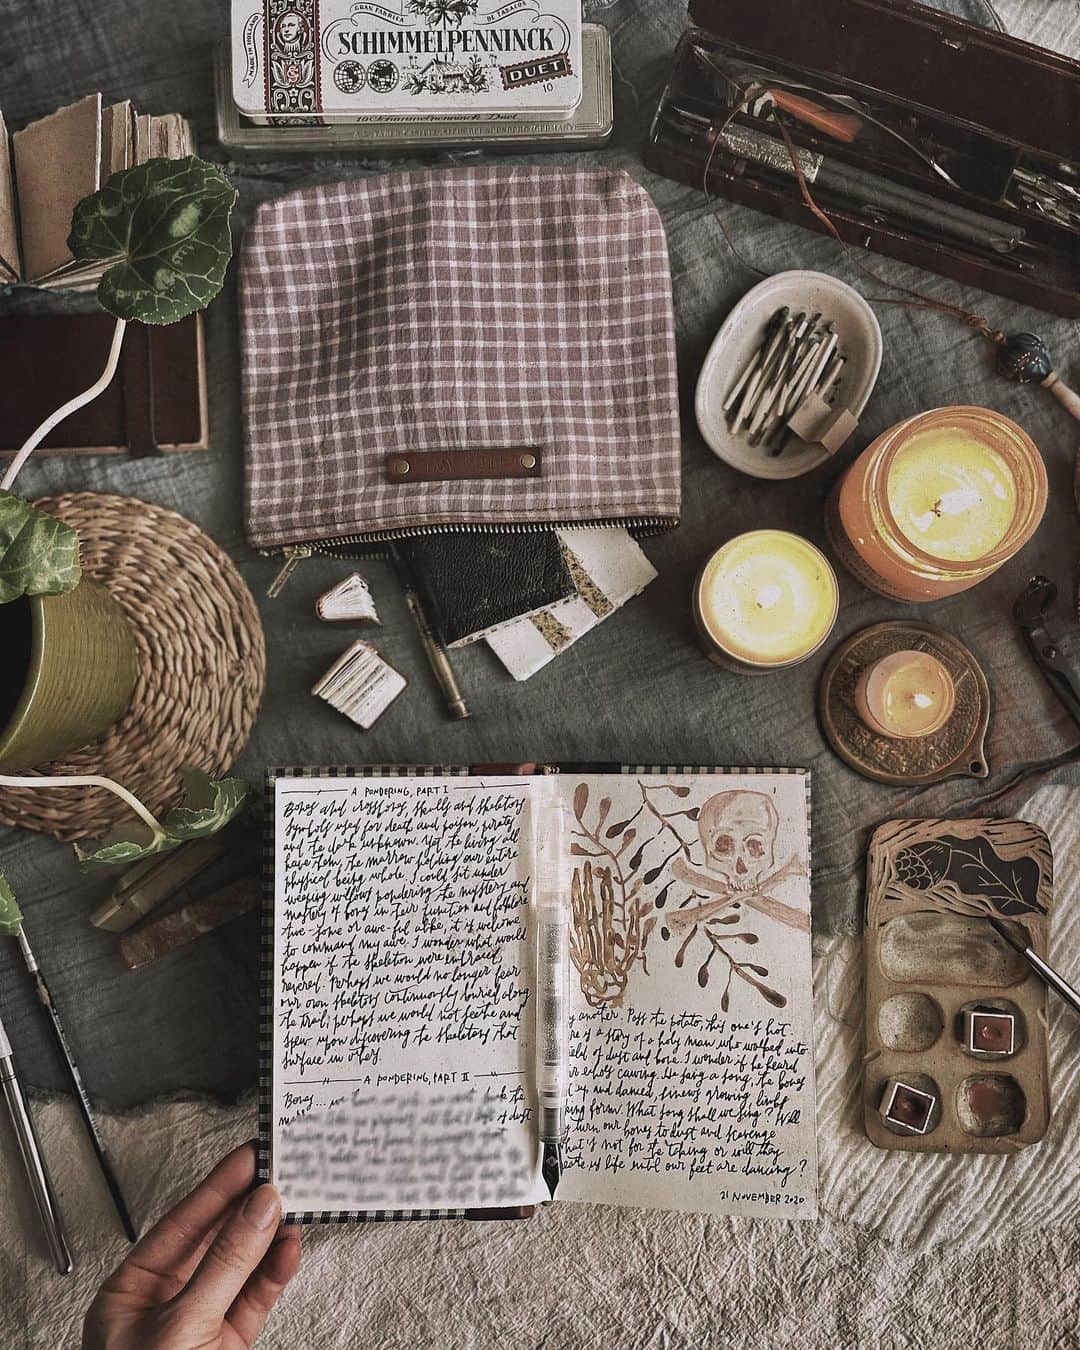 GRAN FABRICA DE TABACOS
MADE IN HOLLAND
SCHIMMELPENNINCK
DUET
10
10 Schimmelpenninck Duet
A PONDERING, PART I
Bones and crossbones, skulls and skeletons
symbols used for death and poison, pirates
and the dark unknown. Yet the living all
have them, the marrow holding our entire
physical being whole. I could sit under
weeping willows pondering the mystery and
mastery of bones in their function and folklore
Awe-some or awe-ful alike, it is welcome
to command my awe. I wonder what would
happen if the skeleton were embraced,
revered. Perhaps we would no longer fear
our own skeletons continuously buried along
the trail; perhaps we would not seethe and
spew upon discovering the skeletons that
surface in others.
A PONDERING, PART II
Bones... we
the
of dust
another. Pass the potato, this one's hot.
is a story of a holy man who walked into
of dust and bone. I wonder if he heard
echoes cawing. He sang a song, the bones
up and danced, sinews growing, limbs
form. What song shall we sing? Will
turn our bones to dust and scavenge
what's not for the taking or will they
us life until our feet are dancing?
21 NOVEMBER 2020